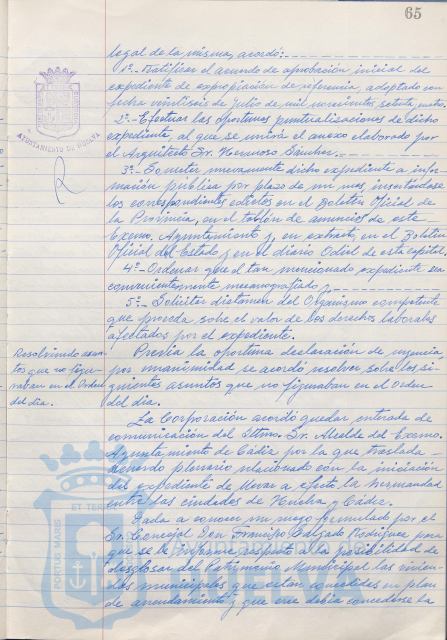 65
legal de la misma, acordó:
1º.- Ratificar el acuerdo de aprobación inicial del
expediente de expropiación de referencia, adoptado con
fecha veintiseis de Julio de mil novecientos setenta y
2º.- Efectuar las oportunas puntualizaciones de dicho
expediente, al que se unirá el anexo elaborado por
el Arquitecto Sr. Hermoso Sánchez.
3º.- Someter nuevamente dicho expediente a infor-
mación pública por plazo de un mes, insertándose
los correspondientes edictos en el Boletín Oficial de
la Provincia, en el tablón de anuncios de este
Excmo. Ayuntamiento y, en extracto, en el Boletín
Oficial del Estado y en el diario Odiel de esta capital.
4º.- Ordenar que el tan mencionado expediente sea
convenientemente mecanografiado y
5º.- Solicitar dictamen del Organismo competente
que proceda sobre el valor de los derechos laborales
afectados por el expediente.
Resolviendo asun-
tos que no figu-
raban en el Orden
del día.
Previa la oportuna declaración de urgencia,
por unanimidad se acordó resolver sobre los si-
guientes asuntos que no figuraban en el orden
del día.
La Corporación acordó quedar enterada de
comunicación del Iltmo. Sr. Alcalde del Excmo.
Ayuntamiento de Cádiz por la que traslada
acuerdo plenario relacionado con la iniciación
del expediente de llevar a efecto la hermandad
entre las ciudades de Huelva y Cádiz.
Dada a conocer un ruego formulado por el
Sr. Concejal Don Francisco Salgado Rodríguez para
que se le informe respecto a la posibilidad de
desglosar del Patrimonio Municipal las vivien-
das municipales que están concedidas en plan
de arrendamiento y que creo debía concederse la
AYUNTAMIENTO DE HUELVA
PORTUS MARIS ET TERRAE